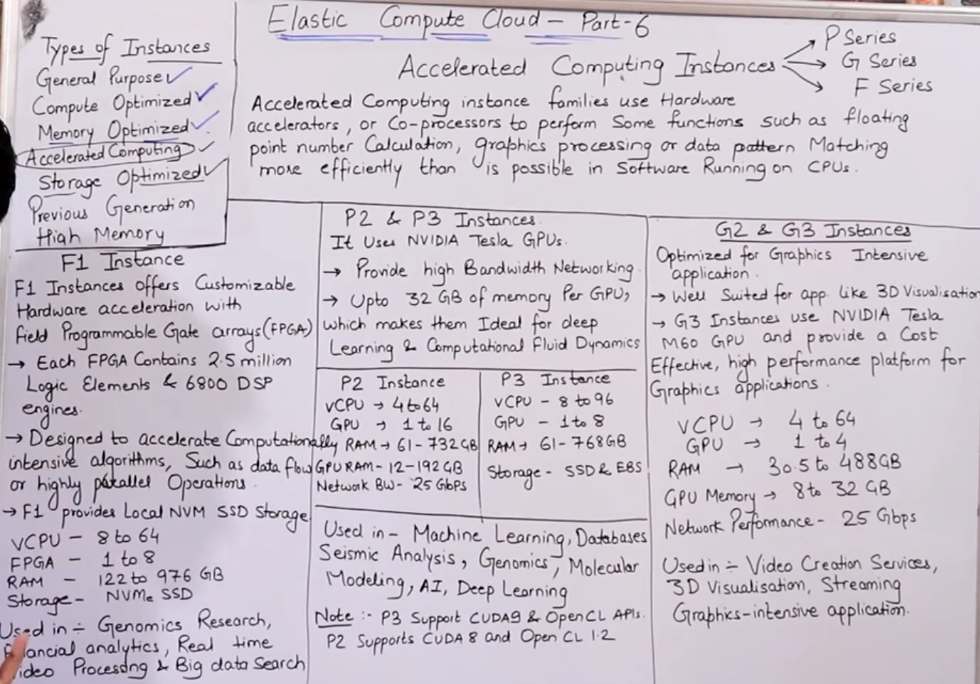 Elastic Compute Cloud - Part-6
Types of Instances
General Purpose
Compute Optimized
Memory Optimized
Accelerated Computing
Storage Optimized
Previous Generation
High Memory
Accelerated Computing Instances
P Series
G Series
F Series
Accelerated Computing instance families use Hardware
accelerators, or Co-processors to perform Some functions such as floating
point number Calculation, graphics processing or data pattern Matching
more efficiently than is possible in Software Running on CPUs.
F1 Instance
F1 Instances offers Customizable
Hardware acceleration with
Field Programmable Gate arrays (FPGA)
→ Each FPGA Contains 2.5 million
Logic Elements & 6800 DSP
engines.
→ Designed to accelerate Computationally
intensive algorithms, Such as data flow
or highly parallel Operations.
→ F1 provides Local NVM SSD Storage
VCPU - 8 to 64
FPGA - 1 to 8
RAM - 122 to 976 GB
Storage - NVMe SSD
Used in ÷ Genomics Research,
financial analytics, Real time
Video Processing & Big data Search
P2 & P3 Instances
It Uses NVIDIA Tesla GPUs.
→ Provide high Bandwidth Networking
→ Upto 32 GB of memory Per GPU,
which makes them Ideal for deep
Learning & Computational Fluid Dynamics
P2 Instance
vCPU → 4 to 64
GPU → 1 to 16
RAM → 61 - 732 GB
GPU RAM - 12 - 192 GB
Network BW - 25 Gbps
P3 Instance
vCPU - 8 to 96
GPU - 1 to 8
RAM → 61 - 768 GB
Storage - SSD & EBS
Used in - Machine Learning, Databases
Seismic Analysis, Genomics, Molecular
Modeling, AI, Deep Learning
Note :- P3 Support CUDA9 & OpenCL APIs.
P2 Supports CUDA 8 and Open CL 1.2
G2 & G3 Instances
Optimized for Graphics Intensive
application.
→ Well Suited for app. like 3D Visualisation
→ G3 Instances use NVIDIA Tesla
M60 GPU and provide a Cost
Effective, high performance platform for
Graphics applications.
VCPU → 4 to 64
GPU → 1 to 4
RAM → 30.5 to 488GB
GPU Memory → 8 to 32 GB
Network Performance - 25 Gbps
Used in ÷ Video Creation Services,
3D Visualisation, Streaming
Graphics-intensive application.